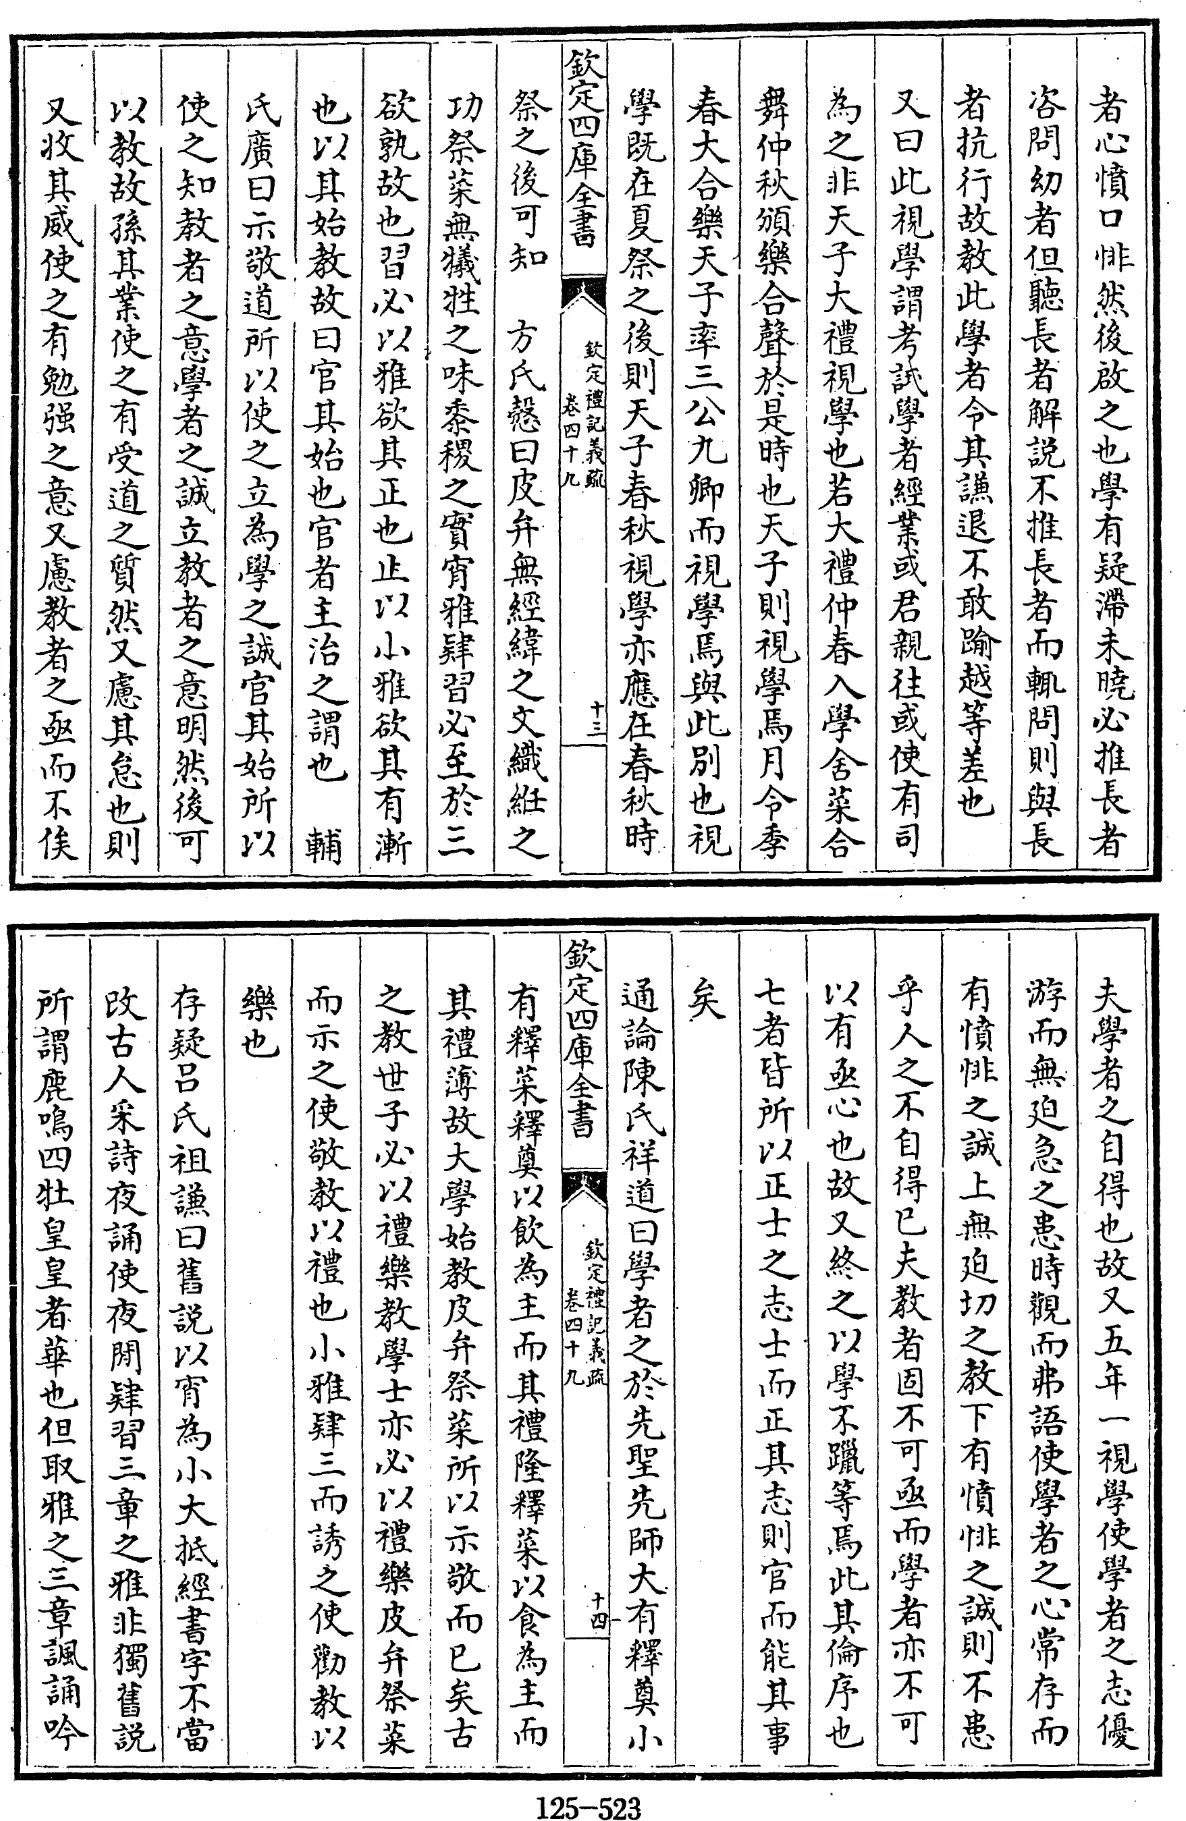 者心憤口悱然後啟之也學有疑滯未曉必推長者
咨問幼者但聽長者解説不推長者而輒問則與長
者抗行故教此學者令其謙退不敢踰越等差也
又曰此視學謂考試學者經業或君親往或使有司
為之非天子大禮視學也若大禮仲春入學舍菜合
舞仲秋頒樂合聲於是時也天子則視學焉月令季
春大合樂天子率三公九卿而視學焉與此別也視
學既在夏祭之後則天子春秋視學亦應在春秋時
欽定四庫全書
欽定禮記義疏
卷四十九
十三
祭之後可知　方氏慤曰皮弁無經緯之文織絍之
功祭菜無犧牲之味黍稷之實宵雅肄習必至於三
欲孰故也習必以雅欲其正也止以小雅欲其有漸
也以其始教故曰官其始也官者主治之謂也　輔
氏廣曰示敬道所以使之立為學之誠官其始所以
使之知教者之意學者之誠立教者之意明然後可
以教故孫其業使之有受道之質然又慮其怠也則
又收其威使之有勉强之意又慮教者之亟而不俟
夫學者之自得也故又五年一視學使學者之志優
游而無廹急之患時觀而弗語使學者之心常存而
有憤悱之誠上無廹切之教下有憤悱之誠則不患
乎人之不自得已夫教者固不可亟而學者亦不可
以有亟心也故又終之以學不躐等焉此其倫序也
七者皆所以正士之志士而正其志則官而能其事
矣
通論陳氏祥道曰學者之於先聖先師大有釋奠小
欽定四庫全書
欽定禮記義疏
卷四十九
十四
有釋菜釋奠以飲為主而其禮隆釋菜以食為主而
其禮薄故大學始教皮弁祭菜所以示敬而已矣古
之教世子必以禮樂教學士亦必以禮樂皮弁祭菜
而示之使敬教以禮也小雅肄三而誘之使勸教以
樂也
存疑吕氏祖謙曰舊説以宵為小大抵經書字不當
改古人采詩夜誦使夜閒肄習三章之雅非獨舊説
所謂鹿鳴四牡皇皇者華也但取雅之三章諷誦吟
125-523